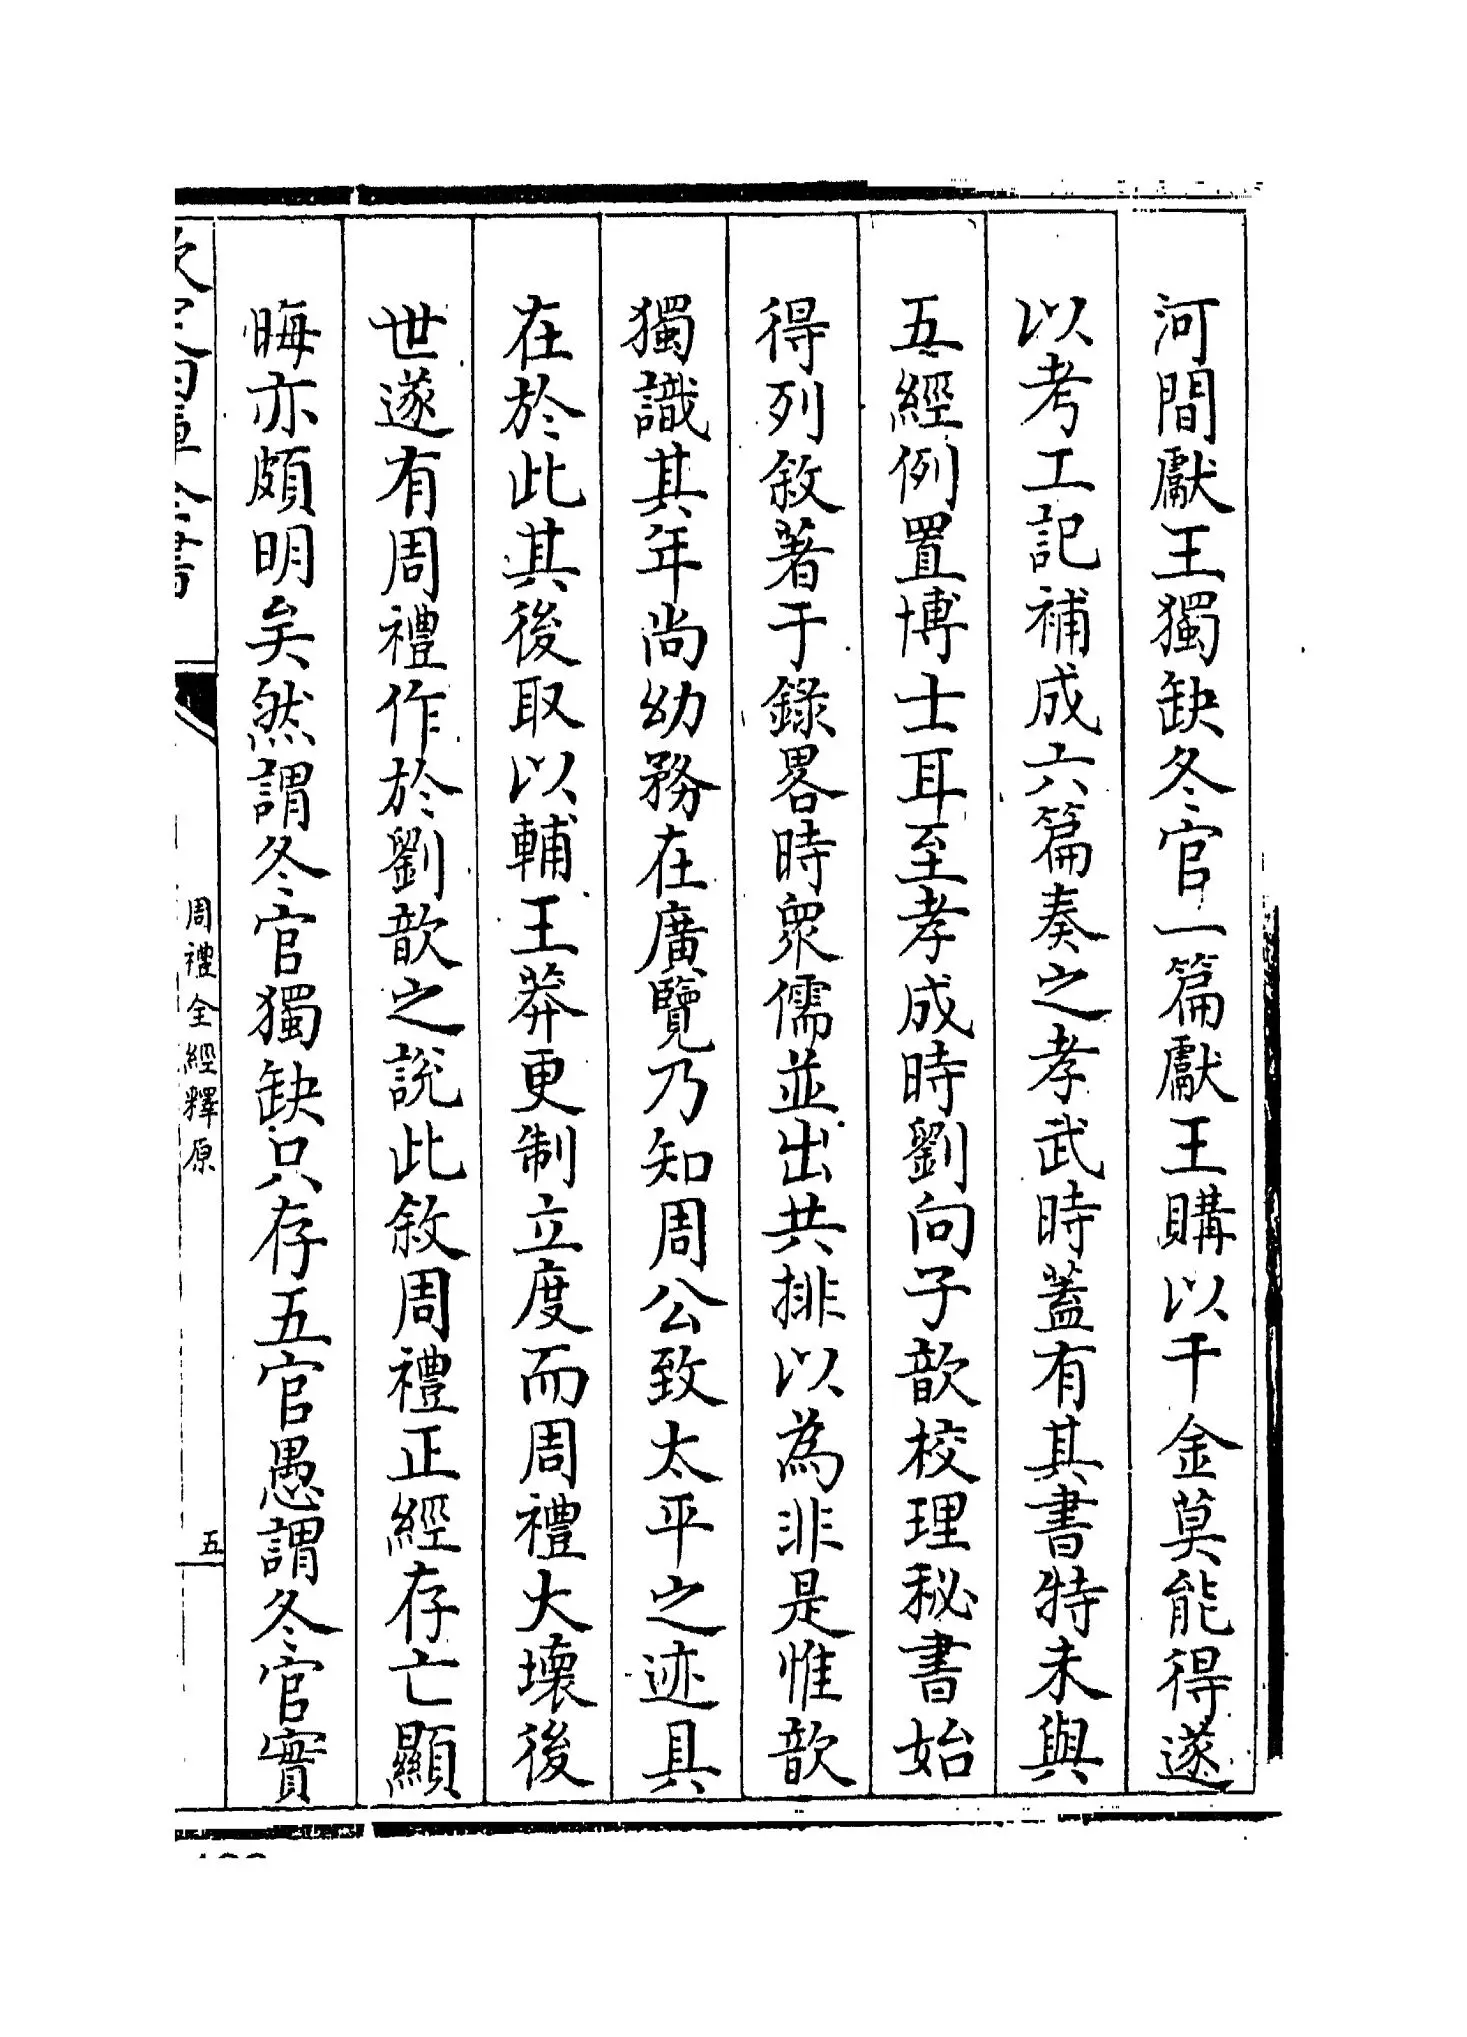 河間獻王獨缺冬官一篇獻王購以千金莫能得遂
以考工記補成六篇奏之孝武時蓋有其書特未與
五經例置博士耳至孝成時劉向子歆校理秘書始
得列敘著于錄畧時衆儒並出共排以為非是惟歆
獨識其年尚幼務在廣覽乃知周公致太平之迹具
在於此其後取以輔王莽更制立度而周禮大壞後
世遂有周禮作於劉歆之說此敘周禮正經存亡顯
晦亦頗明矣然謂冬官獨缺只存五官愚謂冬官實
欽定四庫全書
周禮全經釋原
五